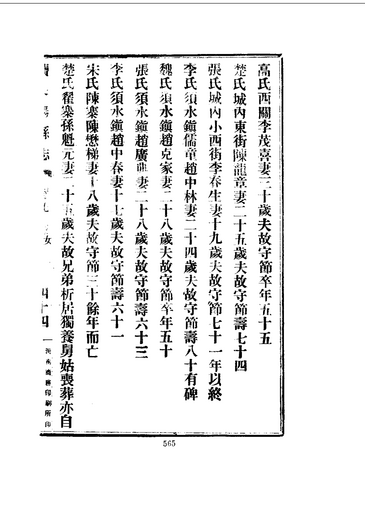 高氏西關李茂喜妻三十歲夫故守節卒年五十五
楚氏城內東街陳龍章妻二十五歲夫故守節壽七十四
張氏城內小西街李春生妻十九歲夫故守節七十一年以終
李氏須水鎮儒童趙中林妻二十四歲夫故守節壽八十有碑
魏氏須水鎮趙克家妻二十八歲夫故守節卒年五十
張氏須水鎮趙廣典妻二十八歲夫故守節壽六十三
李氏須水鎮趙中春妻十七歲夫故守節壽六十一
宋氏陳寨陳懋梯妻十八歲夫故守節三十餘年而亡
楚氏翟寨孫魁元妻二十五歲夫故兄弟析居獨養舅姑喪葬亦自
縣志
四十四
565